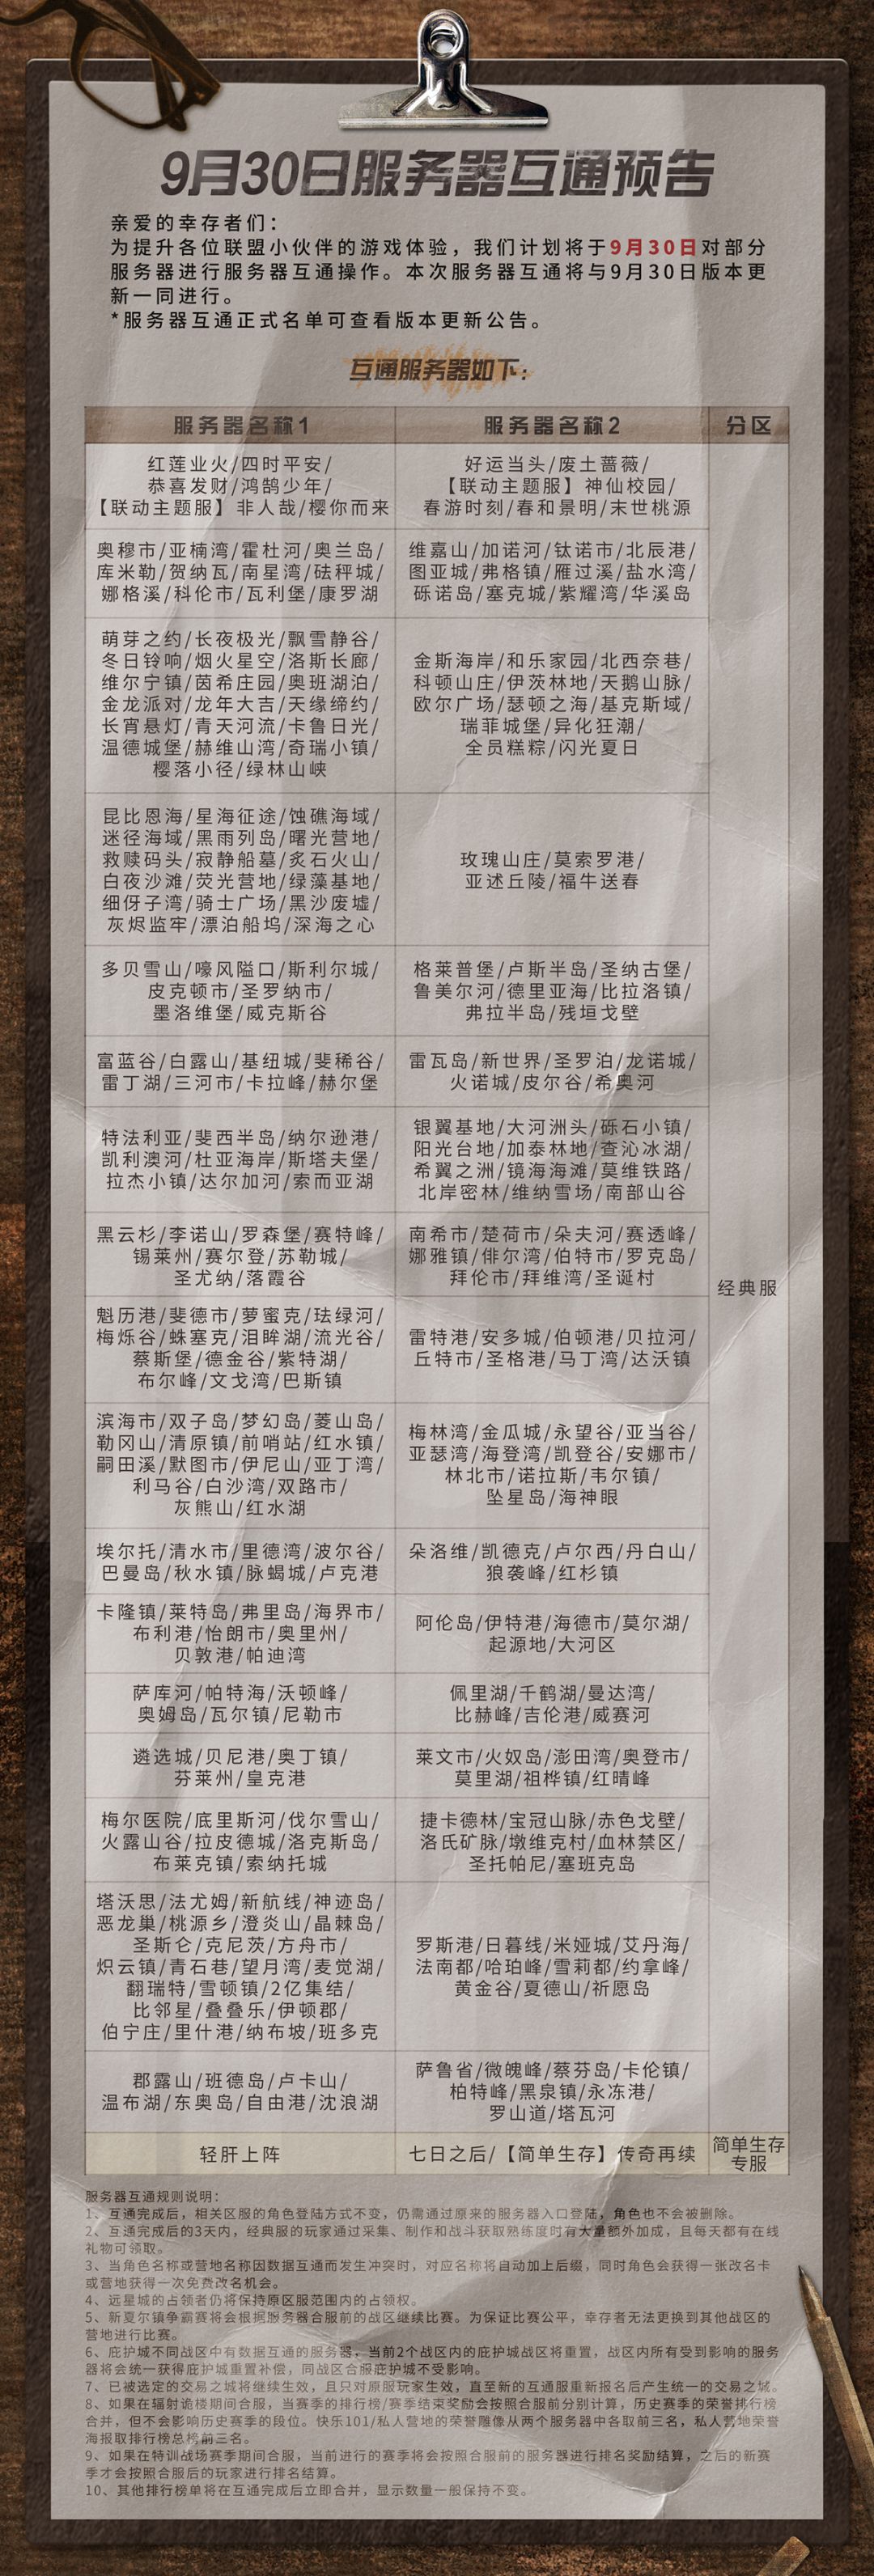 9月30日服务器互通预告
亲爱的幸存者们：
为提升各位联盟小伙伴的游戏体验，我们计划将于9月30日对部分
服务器进行服务器互通操作。本次服务器互通将与9月30日版本更
新一同进行。
*服务器互通正式名单可查看版本更新公告。
互通服务器如下：
服务器名称1 服务器名称2 分区
红莲业火/四时平安/
恭喜发财/鸿鹄少年/
【联动主题服】非人哉/樱你而来
好运当头/废土蔷薇/
【联动主题服】神仙校园/
春游时刻/春和景明/末世桃源
奥穆市/亚楠湾/霍杜河/奥兰岛/
库米勒/贺纳瓦/南星湾/砝秤城/
娜格溪/科伦市/瓦利堡/康罗湖
维嘉山/加诺河/钛诺市/北辰港/
图亚城/弗格镇/雁过溪/盐水湾/
砾诺岛/塞克城/紫耀湾/华溪岛
萌芽之约/长夜极光/飘雪静谷/
冬日铃响/烟火星空/洛斯长廊/
维尔宁镇/茵希庄园/奥班湖泊/
金龙派对/龙年大吉/天缘缔约/
长宵悬灯/青天河流/卡鲁日光/
温德城堡/赫维山湾/奇瑞小镇/
樱落小径/绿林山峡
金斯海岸/和乐家园/北西奈巷/
科顿山庄/伊茨林地/天鹅山脉/
欧尔广场/瑟顿之海/基克斯域/
瑞菲城堡/异化狂潮/
全员糕粽/闪光夏日
昆比恩海/星海征途/蚀礁海域/
迷径海域/黑雨列岛/曙光营地/
救赎码头/寂静船墓/炙石火山/
白夜沙滩/荧光营地/绿藻基地/
细伢子湾/骑士广场/黑沙废墟/
灰烬监牢/漂泊船坞/深海之心
玫瑰山庄/莫索罗港/
亚述丘陵/福牛送春
多贝雪山/嚎风隘口/斯利尔城/
皮克顿市/圣罗纳市/
墨洛维堡/威克斯谷
格莱普堡/卢斯半岛/圣纳古堡/
鲁美尔河/德里亚海/比拉洛镇/
弗拉半岛/残垣戈壁
富蓝谷/白露山/基纽城/斐稀谷/
雷丁湖/三河市/卡拉峰/赫尔堡
雷瓦岛/新世界/圣罗泊/龙诺城/
火诺城/皮尔谷/希奥河
特法利亚/斐西半岛/纳尔逊港/
凯利澳河/杜亚海岸/斯塔夫堡/
拉杰小镇/达尔加河/索而亚湖
银翼基地/大河洲头/砾石小镇/
阳光台地/加泰林地/查沁冰湖/
希翼之洲/镜海海滩/莫维铁路/
北岸密林/维纳雪场/南部山谷
黑云杉/李诺山/罗森堡/赛特峰/
锡莱州/赛尔登/苏勒城/
圣尤纳/落霞谷
南希市/楚荷市/朵夫河/赛透峰/
娜雅镇/俳尔湾/伯特市/罗克岛/
拜伦市/拜维湾/圣诞村
经典服
魁历港/斐德市/萝蜜克/珐绿河/
梅烁谷/蛛塞克/泪眸湖/流光谷/
蔡斯堡/德金谷/紫特湖/
布尔峰/文戈湾/巴斯镇
雷特港/安多城/伯顿港/贝拉河/
丘特市/圣格港/马丁湾/达沃镇
滨海市/双子岛/梦幻岛/菱山岛/
勒冈山/清原镇/前哨站/红水镇/
嗣田溪/默图市/伊尼山/亚丁湾/
利马谷/白沙湾/双路市/
灰熊山/红水湖
梅林湾/金瓜城/永望谷/亚当谷/
亚瑟湾/海登湾/凯登谷/安娜市/
林北市/诺拉斯/韦尔镇/
坠星岛/海神眼
埃尔托/清水市/里德湾/波尔谷/
巴曼岛/秋水镇/脉蝎城/卢克港
朵洛维/凯德克/卢尔西/丹白山/
狼袭峰/红杉镇
卡隆镇/莱特岛/弗里岛/海界市/
布利港/怡朗市/奥里州/
贝敦港/帕迪湾
阿伦岛/伊特港/海德市/莫尔湖/
起源地/大河区
萨库河/帕特海/沃顿峰/
奥姆岛/瓦尔镇/尼勒市
佩里湖/千鹤湖/曼达湾/
比赫峰/吉伦港/威赛河
遴选城/贝尼港/奥丁镇/
芬莱州/皇克港
莱文市/火奴岛/澎田湾/奥登市/
莫里湖/祖桦镇/红晴峰
梅尔医院/底里斯河/伐尔雪山/
火露山谷/拉皮德城/洛克斯岛/
布莱克镇/索纳托城
捷卡德林/宝冠山脉/赤色戈壁/
洛氏矿脉/墩维克村/血林禁区/
圣托帕尼/塞班克岛
塔沃思/法尤姆/新航线/神迹岛/
恶龙巢/桃源乡/澄炎山/晶棘岛/
圣斯仑/克尼茨/方舟市/
炽云镇/青石巷/望月湾/麦觉湖/
翻瑞特/雪顿镇/2亿集结/
比邻星/叠叠乐/伊顿郡/
伯宁庄/里什港/纳布坡/班多克
罗斯港/日暮线/米娅城/艾丹海/
法南都/哈珀峰/雪莉都/约拿峰/
黄金谷/夏德山/祈愿岛
郡露山/班德岛/卢卡山/
温布湖/东奥岛/自由港/沈浪湖
萨鲁省/微魄峰/蔡芬岛/卡伦镇/
柏特峰/黑泉镇/永冻港/
罗山道/塔瓦河
轻肝上阵 七日之后/【简单生存】传奇再续 简单生存
专服
服务器互通规则说明：
1、互通完成后，相关区服的角色登陆方式不变，仍需通过原来的服务器入口登陆，角色也不会被删除。
2、互通完成后的3天内，经典服的玩家通过采集、制作和战斗获取熟练度时有大量额外加成，且每天都有在线
礼物可领取。
3、当角色名称或营地名称因数据互通而发生冲突时，对应名称将自动加上后缀，同时角色会获得一张改名卡
或营地获得一次免费改名机会。
4、远星城的占领者仍将保持原区服范围内的占领权。
5、新夏尔镇争霸赛将会根据服务器合服前的战区继续比赛。为保证比赛公平，幸存者无法更换到其他战区的
营地进行比赛。
6、庇护城不同战区中有数据互通的服务器，当前2个战区内的庇护城战区将重置，战区内所有受到影响的服务
器将会统一获得庇护城重置补偿，同战区合服庇护城不受影响。
7、已被选定的交易之城将继续生效，且只对原服玩家生效，直至新的互通服重新报名后产生统一的交易之城。
8、如果在辐射诡楼期间合服，当赛季的排行榜/赛季结束奖励会按照合服前分别计算，历史赛季的荣誉排行榜
合并，但不会影响历史赛季的段位。快乐101/私人营地的荣誉雕像从两个服务器中各取前三名，私人营地荣誉
海报取排行榜总榜前三名。
9、如果在特训战场赛季期间合服，当前进行的赛季将会按照合服前的服务器进行排名奖励结算，之后的新赛
季才会按照合服后的玩家进行排名结算。
10、其他排行榜单将在互通完成后立即合并，显示数量一般保持不变。